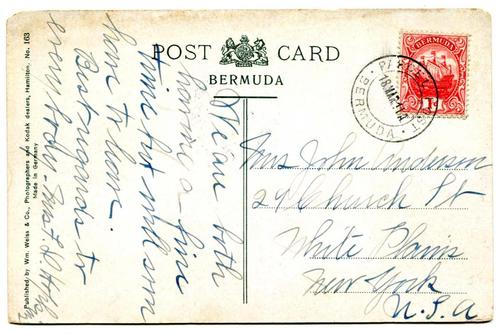 POST CARD
BERMUDA
BERMUDA
1d
BERMUDA
We are both
having a fine
time but will soon
have to leave.
Best regards to
everybody - Mrs. F. H.
Mrs John Anderson
24 Church St
White Plains
New York
U.S.A
Published by Wm. Weiss & Co., Photographers and Kodak dealers, Hamilton, No. 163
Made in Germany